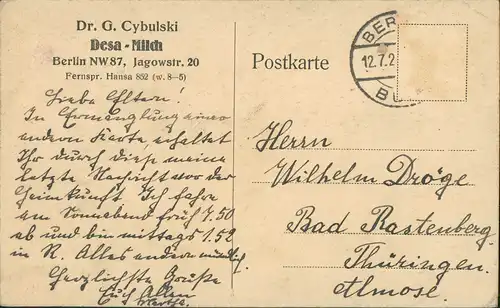 Dr. G. Cybulski
Desa-Milch
Berlin NW87, Jagowstr. 20
Fernspr. Hansa 852 (w. 8-5)
Postkarte
BER
12.7.2
B
Liebe Eltern!
In Ermanglung einer
andern Karte, erhaltet
Ihr durch diese meine
letzte Nachricht vor der
Heimkunft. Ich fahre
am Sonnabend früh 7.50
ab und bin mittags 1.52
in R. Alles andere mündlich.
Herzlichste Grüße
Euch Allen
Herrn
Wilhelm Dröge
Bad Rastenberg
Thüringen.
Almose.